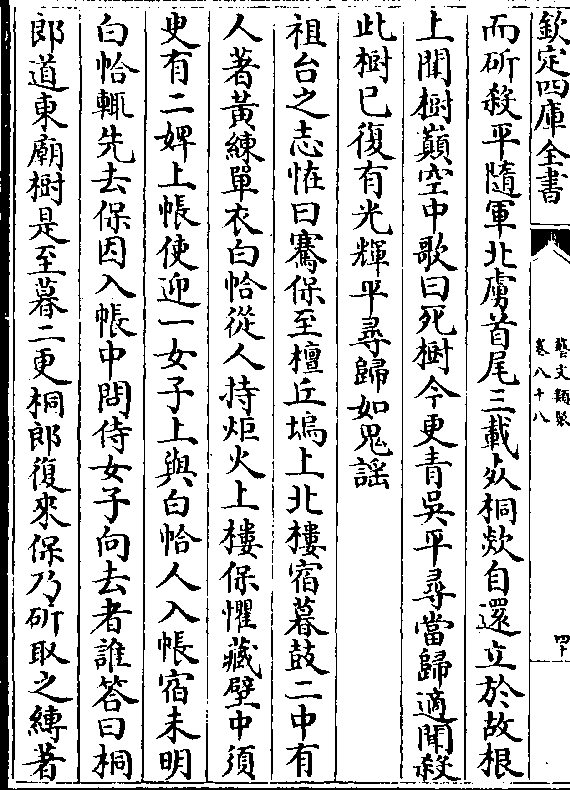 欽定四庫全書
藝文類聚
卷八十八
四十
而斫殺平隨軍北虜首尾三載死桐欻自還立於故根
上聞樹巔空中歌曰死樹今更青吳平尋當歸適聞殺
此樹已復有光輝平尋歸如鬼謡
祖台之志怪曰騫保至檀丘塢上北樓宿暮鼓二中有
人著黃練單衣白帢從人持炬火上樓保懼藏壁中須
㕝有二婢上帳使迎一女子上與白帢人入帳宿未明
白帢輒先去保因入帳中問侍女子向去者誰答曰桐
郎道東廟樹是至暮二更桐郎復來保乃斫取之縛著